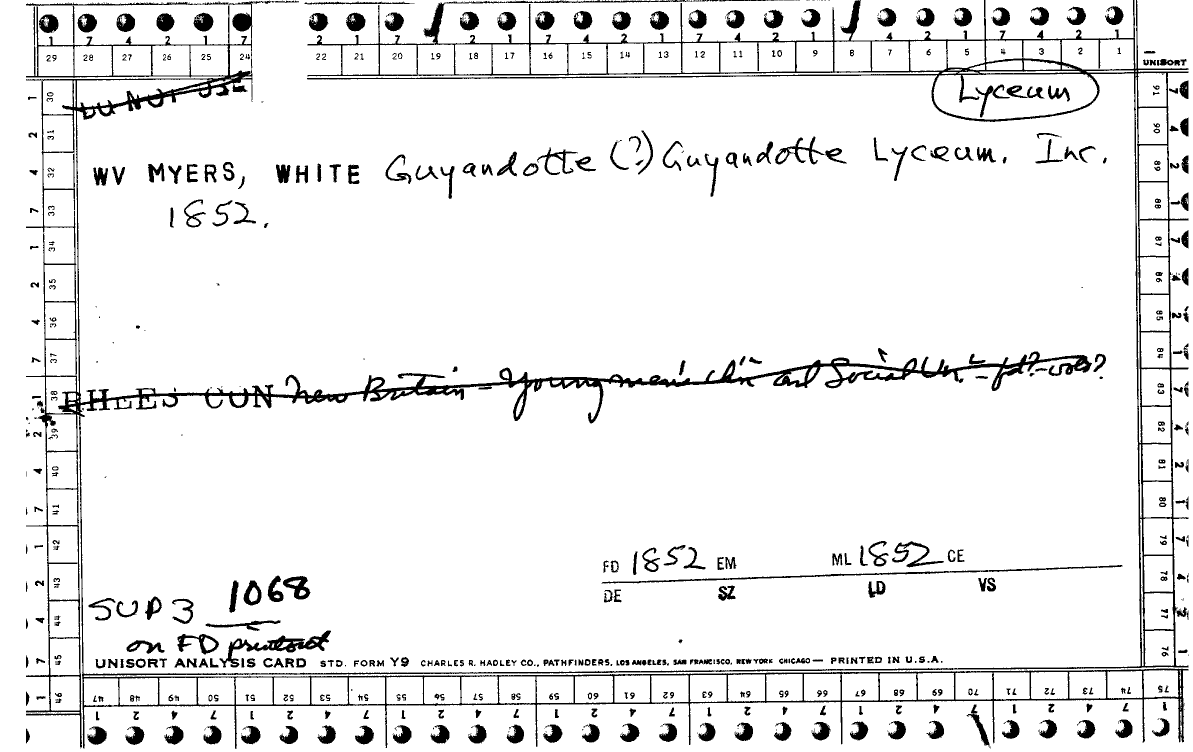 1 7 4 2 1 7 2 1 7 4 2 1 7 4 2 1 7 4 2 1 7 4 2 1
29 28 27 26 25 24 22 21 20 19 18 17 16 15 14 13 12 11 10 9 8 7 6 5 4 3 2 1
UNISORT
DO NOT USE
Lyceum
WV MYERS, WHITE Guyandotte (?) Guyandotte Lyceum. Inc.
1852.
RHEES CON New Britain - Young men's and Social Un
FD 1852 EM ML 1852 CE
DE SZ LD VS
SUP 3 1068
on FD printout
UNISORT ANALYSIS CARD STD. FORM Y9 CHARLES R. HADLEY CO., PATHFINDERS, LOS ANGELES, SAN FRANCISCO, NEW YORK CHICAGO — PRINTED IN U.S.A.
30 31 32 33 34 35 36 37 38 39 40 41 42 43 44 45 46
91 90 89 88 87 86 85 84 83 82 81 80 79 78 77 76
47 48 49 50 51 52 53 54 55 56 57 58 59 60 61 62 63 64 65 66 67 68 69 70 71 72 73 74 75